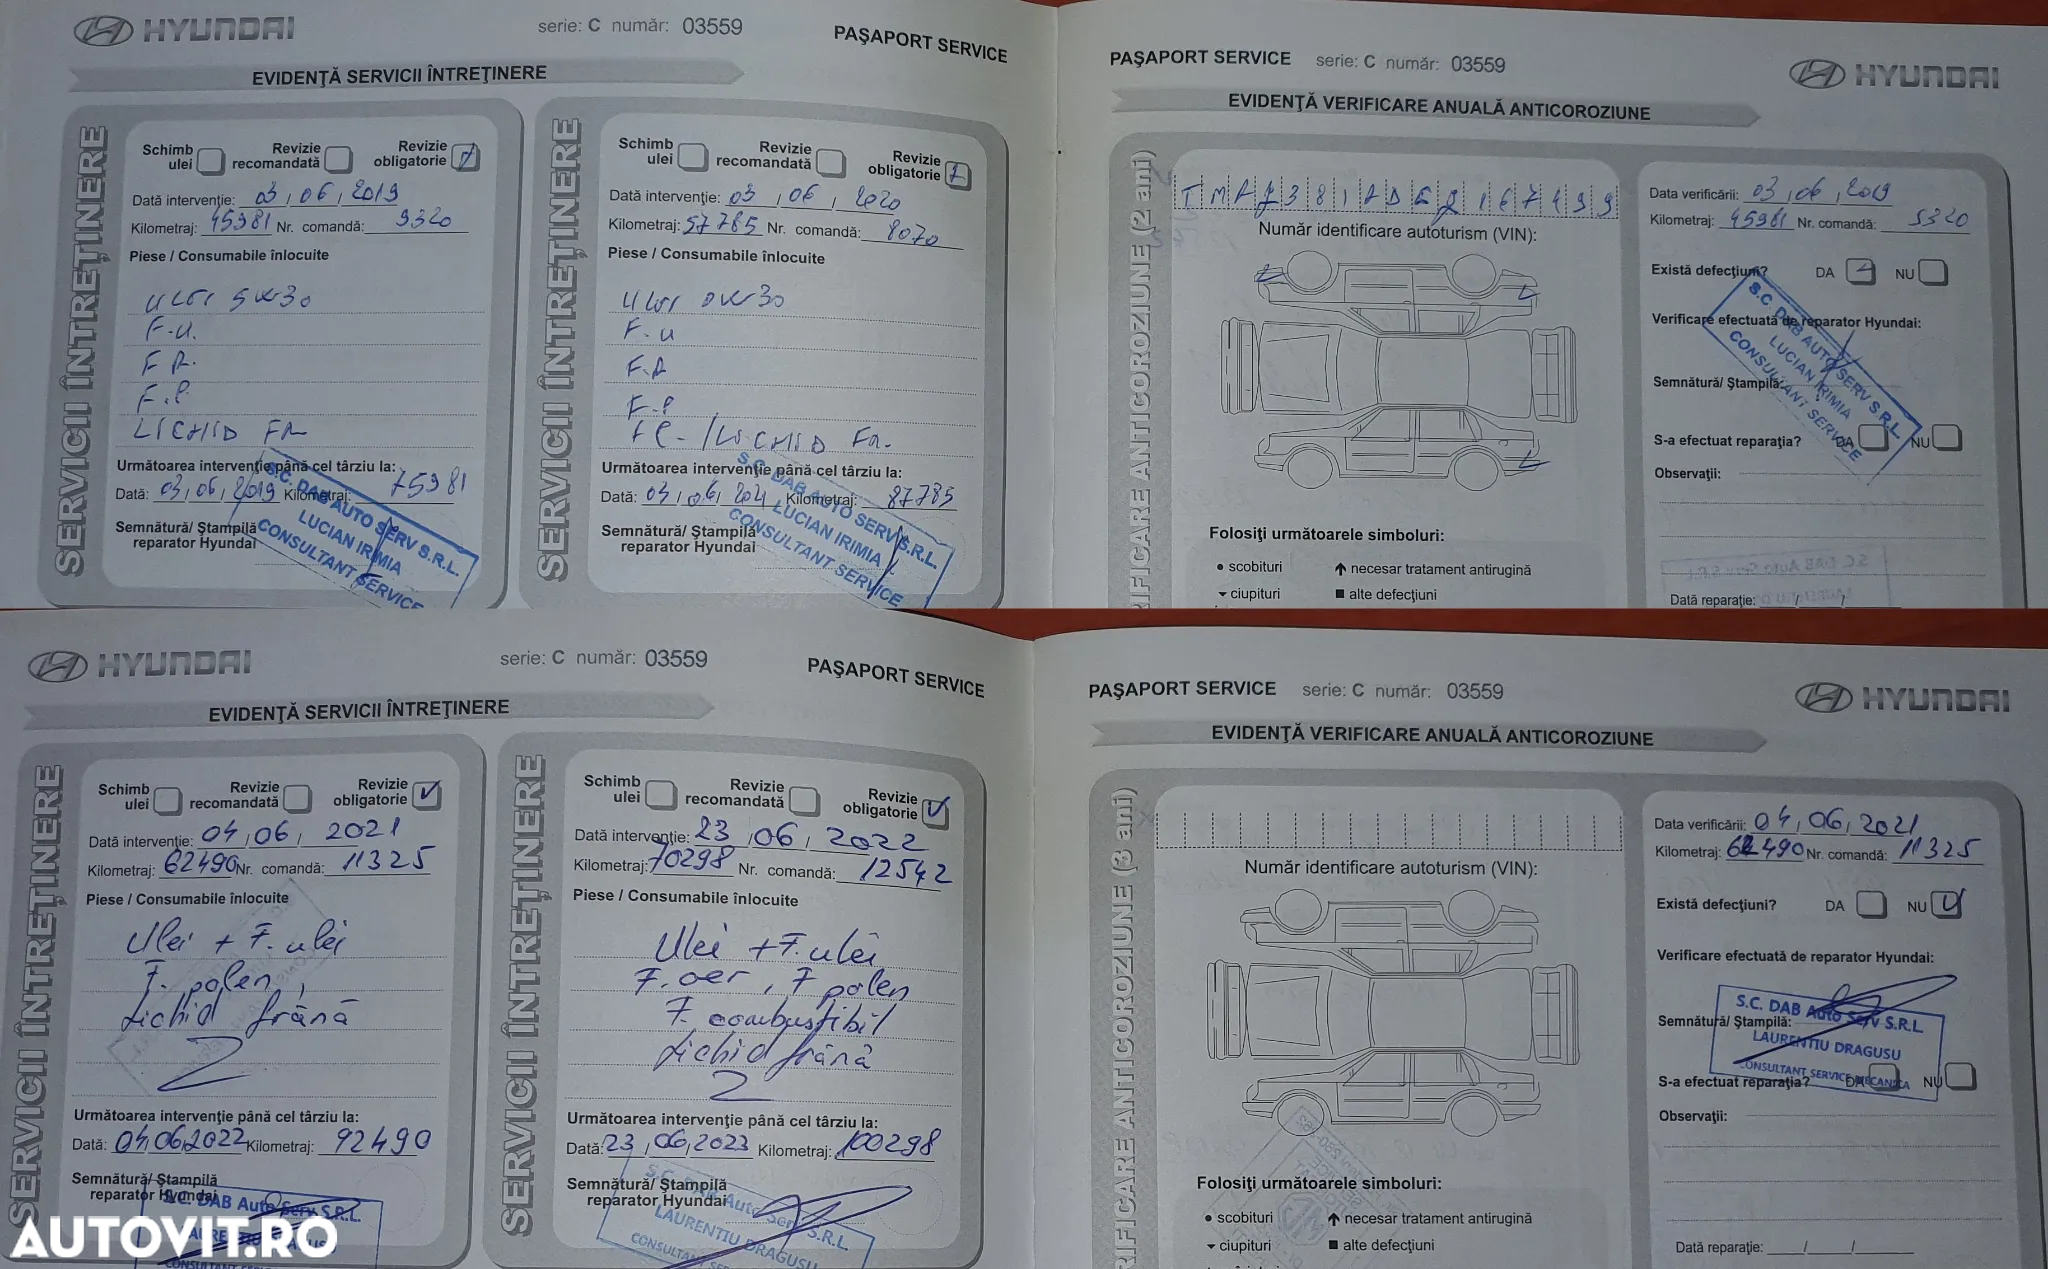 HYUNDAI
serie: C număr: 03559
PAȘAPORT SERVICE
EVIDENȚĂ SERVICII ÎNTREȚINERE
SERVICII ÎNTREȚINERE
Schimb ulei
Revizie recomandată
Revizie obligatorie
Dată intervenție: 03, 06, 2019
Kilometraj: 45981 Nr. comandă: 9320
Piese / Consumabile înlocuite
ULEI 5W30
F.U.
F A.
F.P
LICHID FR
Următoarea intervenție până cel târziu la:
Dată: 03, 06, 2019 Kilometraj: 75981
Semnătură/ Ștampilă
reparator Hyundai
S.C. DAB AUTO SERV S.R.L.
LUCIAN IRIMIA
CONSULTANT SERVICE
SERVICII ÎNTREȚINERE
Schimb ulei
Revizie recomandată
Revizie obligatorie
Dată intervenție: 03, 06, 2020
Kilometraj: 57785 Nr. comandă: 8070
Piese / Consumabile înlocuite
ULEI 0W30
F.U
F.A
F.P
FC. / LICHID FR.
Următoarea intervenție până cel târziu la:
Dată: 03, 06, 2021 Kilometraj: 87785
Semnătură/ Ștampilă
reparator Hyundai
S.C. DAB AUTO SERV S.R.L.
LUCIAN IRIMIA
CONSULTANT SERVICE
PAȘAPORT SERVICE serie: C număr: 03559
HYUNDAI
EVIDENȚĂ VERIFICARE ANUALĂ ANTICOROZIUNE
RIFICARE ANTICOROZIUNE (2 ani)
Număr identificare autoturism (VIN):
Folosiți următoarele simboluri:
• scobituri
necesar tratament antirugină
ciupituri
■ alte defecțiuni
Data verificării: 03, 06, 2019
Kilometraj: 45981 Nr. comandă: 9320
Există defecțiuni? DA NU
Verificare efectuată de reparator Hyundai:
Semnătură/ Ștampilă:
S.C. DAB AUTO SERV S.R.L
LUCIAN IRIMIA
CONSULTANT SERVICE
S-a efectuat reparația? DA NU
Observații:
Dată reparație: / /
HYUNDAI
serie: C număr: 03559
PAȘAPORT SERVICE
EVIDENȚĂ SERVICII ÎNTREȚINERE
SERVICII ÎNTREȚINERE
Schimb ulei
Revizie recomandată
Revizie obligatorie
Dată intervenție: 04, 06, 2021
Kilometraj: 62490 Nr. comandă: 11325
Piese / Consumabile înlocuite
Ulei + F. ulei
F. polen,
Lichid frână
Următoarea intervenție până cel târziu la:
Dată: 04,06,2022 Kilometraj: 92490
Semnătură/ Ștampilă
reparator Hyundai
S.C. DAB Auto Serv S.R.L.
SERVICII ÎNTREȚINERE
Schimb ulei
Revizie recomandată
Revizie obligatorie
Dată intervenție: 23, 06, 2022
Kilometraj: 70298 Nr. comandă: 12542
Piese / Consumabile înlocuite
Ulei + F. ulei
F. aer, F polen
F. combustibil
Lichid frână
Următoarea intervenție până cel târziu la:
Dată: 23, 06, 2023 Kilometraj: 100298
Semnătură/ Ștampilă
reparator Hyundai
S.C. DAB Auto Serv S.R.L
LAURENTIU DRAGUSU
PAȘAPORT SERVICE serie: C număr: 03559
HYUNDAI
EVIDENȚĂ VERIFICARE ANUALĂ ANTICOROZIUNE
RIFICARE ANTICOROZIUNE (3 ani)
Număr identificare autoturism (VIN):
Folosiți următoarele simboluri:
• scobituri
necesar tratament antirugină
ciupituri
■ alte defecțiuni
Data verificării: 04, 06, 2021
Kilometraj: 62490 Nr. comandă: 11325
Există defecțiuni? DA NU
Verificare efectuată de reparator Hyundai:
Semnătură/ Ștampilă:
S.C. DAB Auto Serv S.R.L
LAURENTIU DRAGUSU
CONSULTANT SERVICE MECANICA
S-a efectuat reparația? DA NU
Observații:
Dată reparație: / /
AUTOVIT.RO